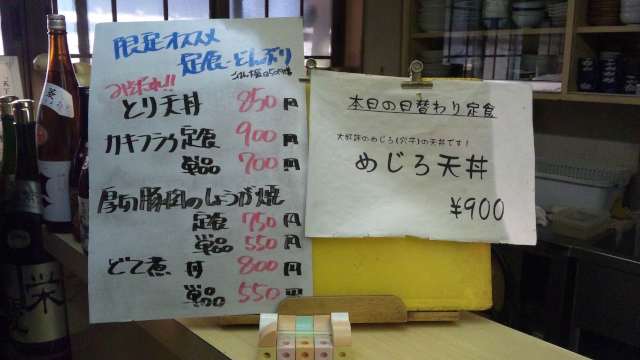 限定オススメ
定食・どんぶり
つゆだれ!!
とり天丼 850円
カキフライ定食 900円
単品 700円
厚切豚肉のしょうが焼
定食 750円
単品 550円
どて煮 丼 800円
単品 550円
本日の日替わり定食
大好評のめじろ(穴子)の天丼です!
めじろ天丼
¥900
栄